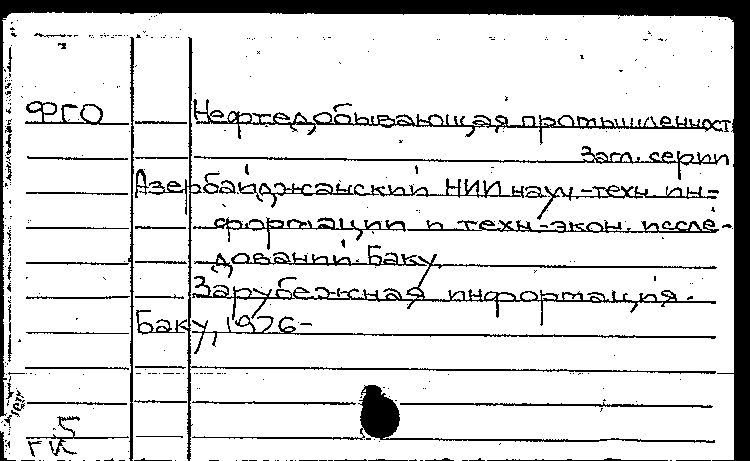 ФГО Нефтедобывающая промышленност
Заг. серии
Азербайджанский НИИ науч.-техн. ин-
формации и техн.-экон. иссле-
дований. Баку.
Зарубежная информация.
Баку, 1976-
5
ГК